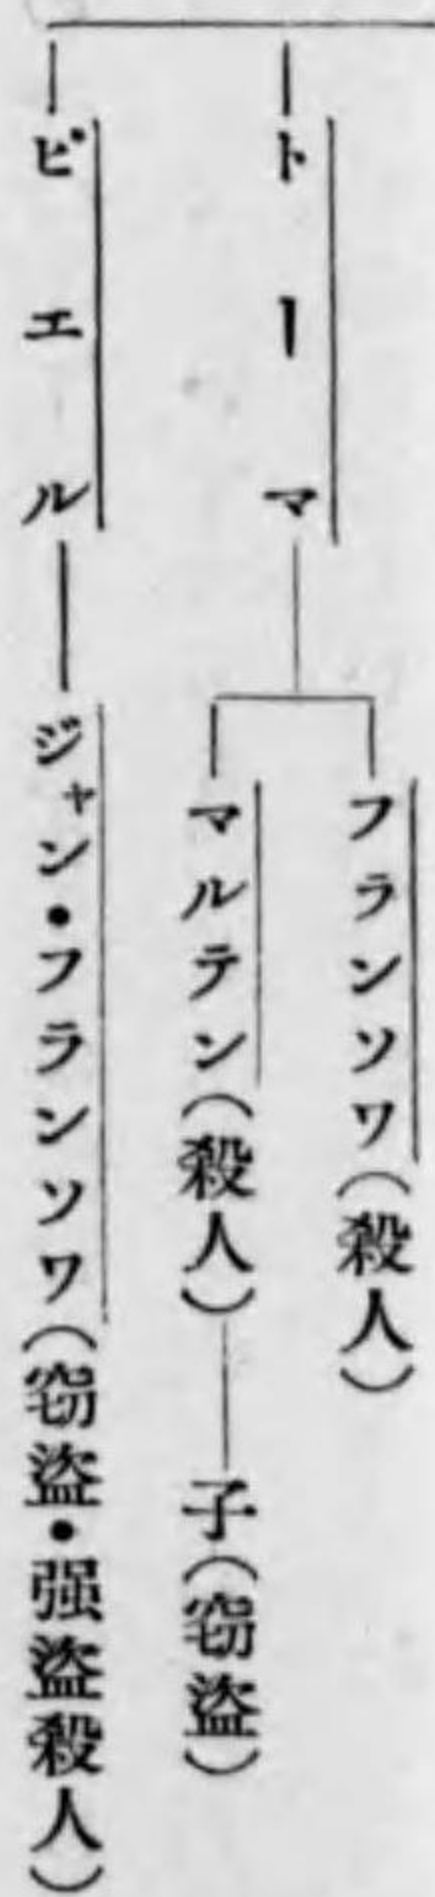 トーマ
フランソワ(殺人)
マルテン(殺人)
子(窃盗)
ピエル
ジャン・フランソワ(窃盗・强盗殺人)